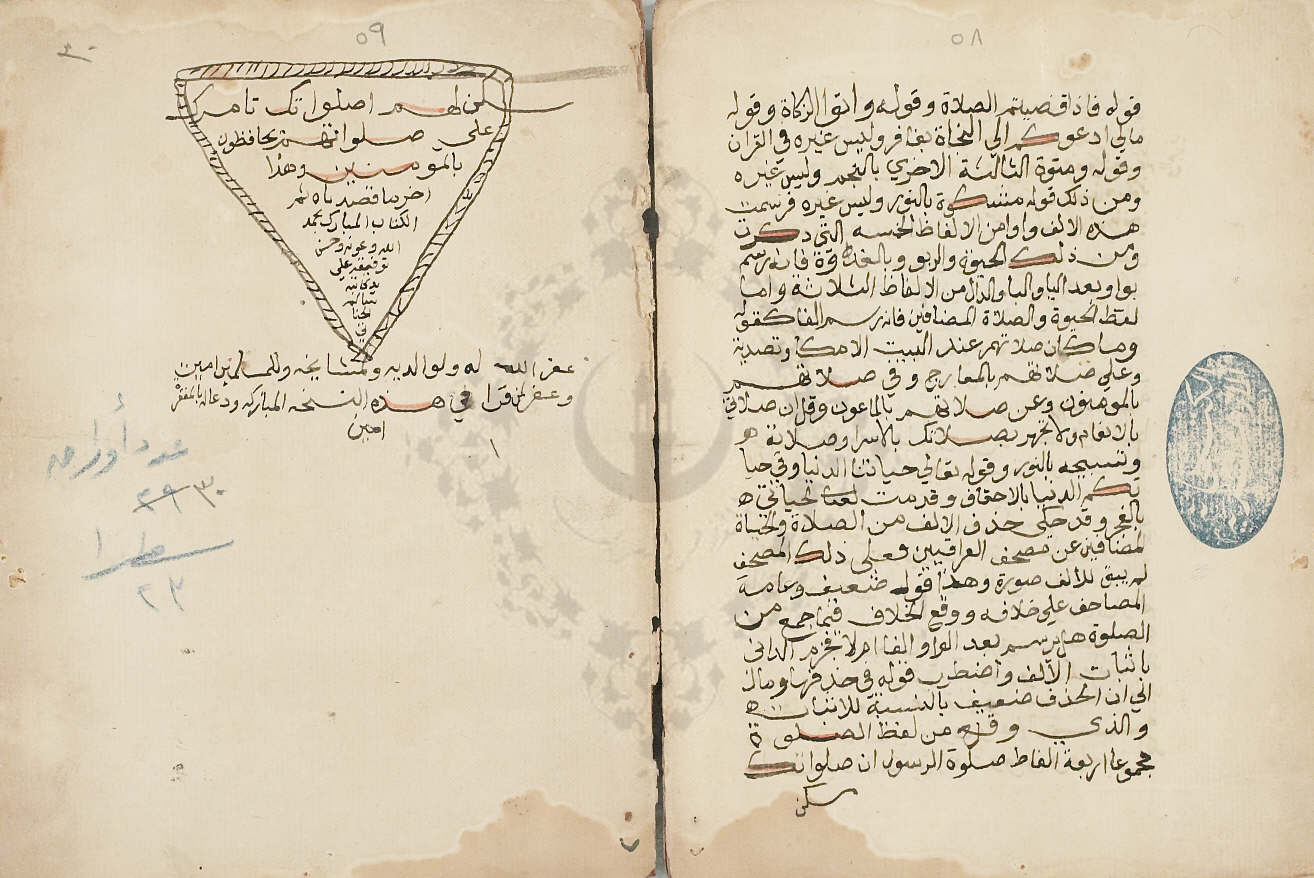 ٥٨
قوله فاذا قضيتم الصلاة وقوله واتوا الزكاة وقوله
مالي ادعوكم الي النجاة بغافر وليس غيره في القران
وقوله ومنوة الثالثة الاخري بالنجم وليس غيره
ومن ذلك قوله مشكوة بالنور وليس غيره فرسمت
هذه الالف واوا من الالفاظ الخمسه التي ذكرت
ومن ذلك الحيوة والربو وبالغدوة فانه رسم
بواو بعد اليا والبا والدال من الالفاظ الثلاثة واما
لفظ الحيوة والصلاة المضافين فانه رسم الفا كقوله
وما كان صلاتهم عند البيت الا مكا وتصدية
وعلي صلاتهم بالمعارج وفي صلاتهم
بالمومنون وعن صلاتهم بالماعون وقل ان صلاتي
بالانعام ولا تجهر بصلاتك بالاسرا وصلاته
وتسبيحه بالنور وقوله تعالي حياتنا الدنيا وفي حيا
تكم الدنيا بالاحقاف وقدمت لحياتي
بالفجر وقد حكي حذف الالف من الصلاة والحياة
المضافين عن مصحف العراقيين فعلي ذلك المصحف
لم يبق للالف صورة وهذا قوله ضعيف وعامة
المصاحف علي خلافه ووقع الخلاف فيما جمع من
الصلوة هل يرسم بعد الواو الفا ام لا فجزم الداني
باثبات الالف واضطرب قوله في حذفها ومال
الي ان الحذف ضعيف بالنسبة للاثبات
والذي وقع من لفظ الصلوة
مجموعا اربعة الفاظ صلوة الرسول ان صلواتك
سكن
٥٩
٣٠
سكن لهم اصلواتك تامرك
علي صلواتهم يحافظون
بالمومنين وهذا
اخر ما قصدناه
الكتاب المبارك بحمد
الله وعونه وحسن
توفيقه علي
غفر الله له ولوالديه ولمشايخه وللمسلمين امين
وغفر لمن قرا في هذه النسخه المباركه ودعا له بالمغفرة
امين
عدد أوراقه
٣٠
٢٩
سطرا
٢٣